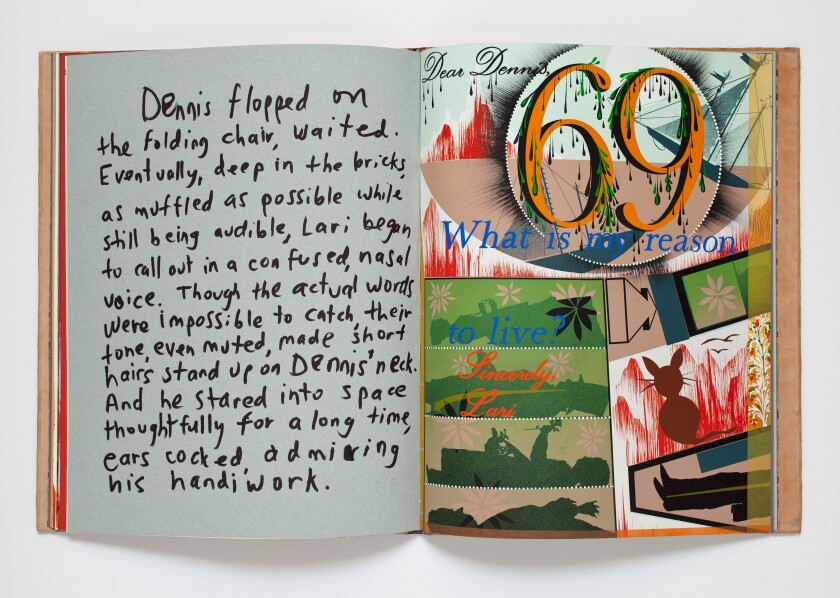 Dennis flopped on
the folding chair, waited.
Eventually, deep in the bricks,
as muffled as possible while
still being audible, Lari began
to call out in a confused, nasal
voice. Though the actual words
were impossible to catch, their
tone, even muted, made short
hairs stand up on Dennis' neck.
And he stared into space
thoughtfully for a long time,
ears cocked, admiring
his handiwork.
Dear Dennis,
69
What is my reason
to live?
Sincerely,
Lari